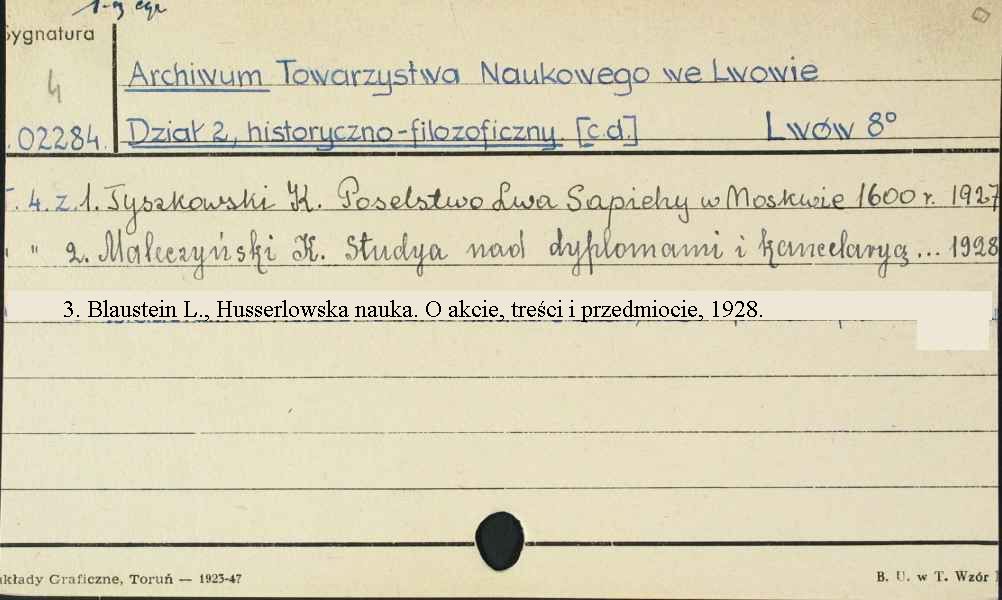 1-3 egz
Sygnatura
4
02284
Archiwum Towarzystwa Naukowego we Lwowie
Dział 2, historyczno-filozoficzny. [c.d.] Lwów 8°
T. 4. z. 1. Tyszkowski K. Poselstwo Lwa Sapiehy w Moskwie 1600 r. 1927
" " 2. Małeczyński K. Studya nad dyplomami i kancelaryą ... 1928
3. Blaustein L., Husserlowska nauka. O akcie, treści i przedmiocie, 1928.
akłady Graficzne, Toruń — 1923-47
B. U. w T. Wzór